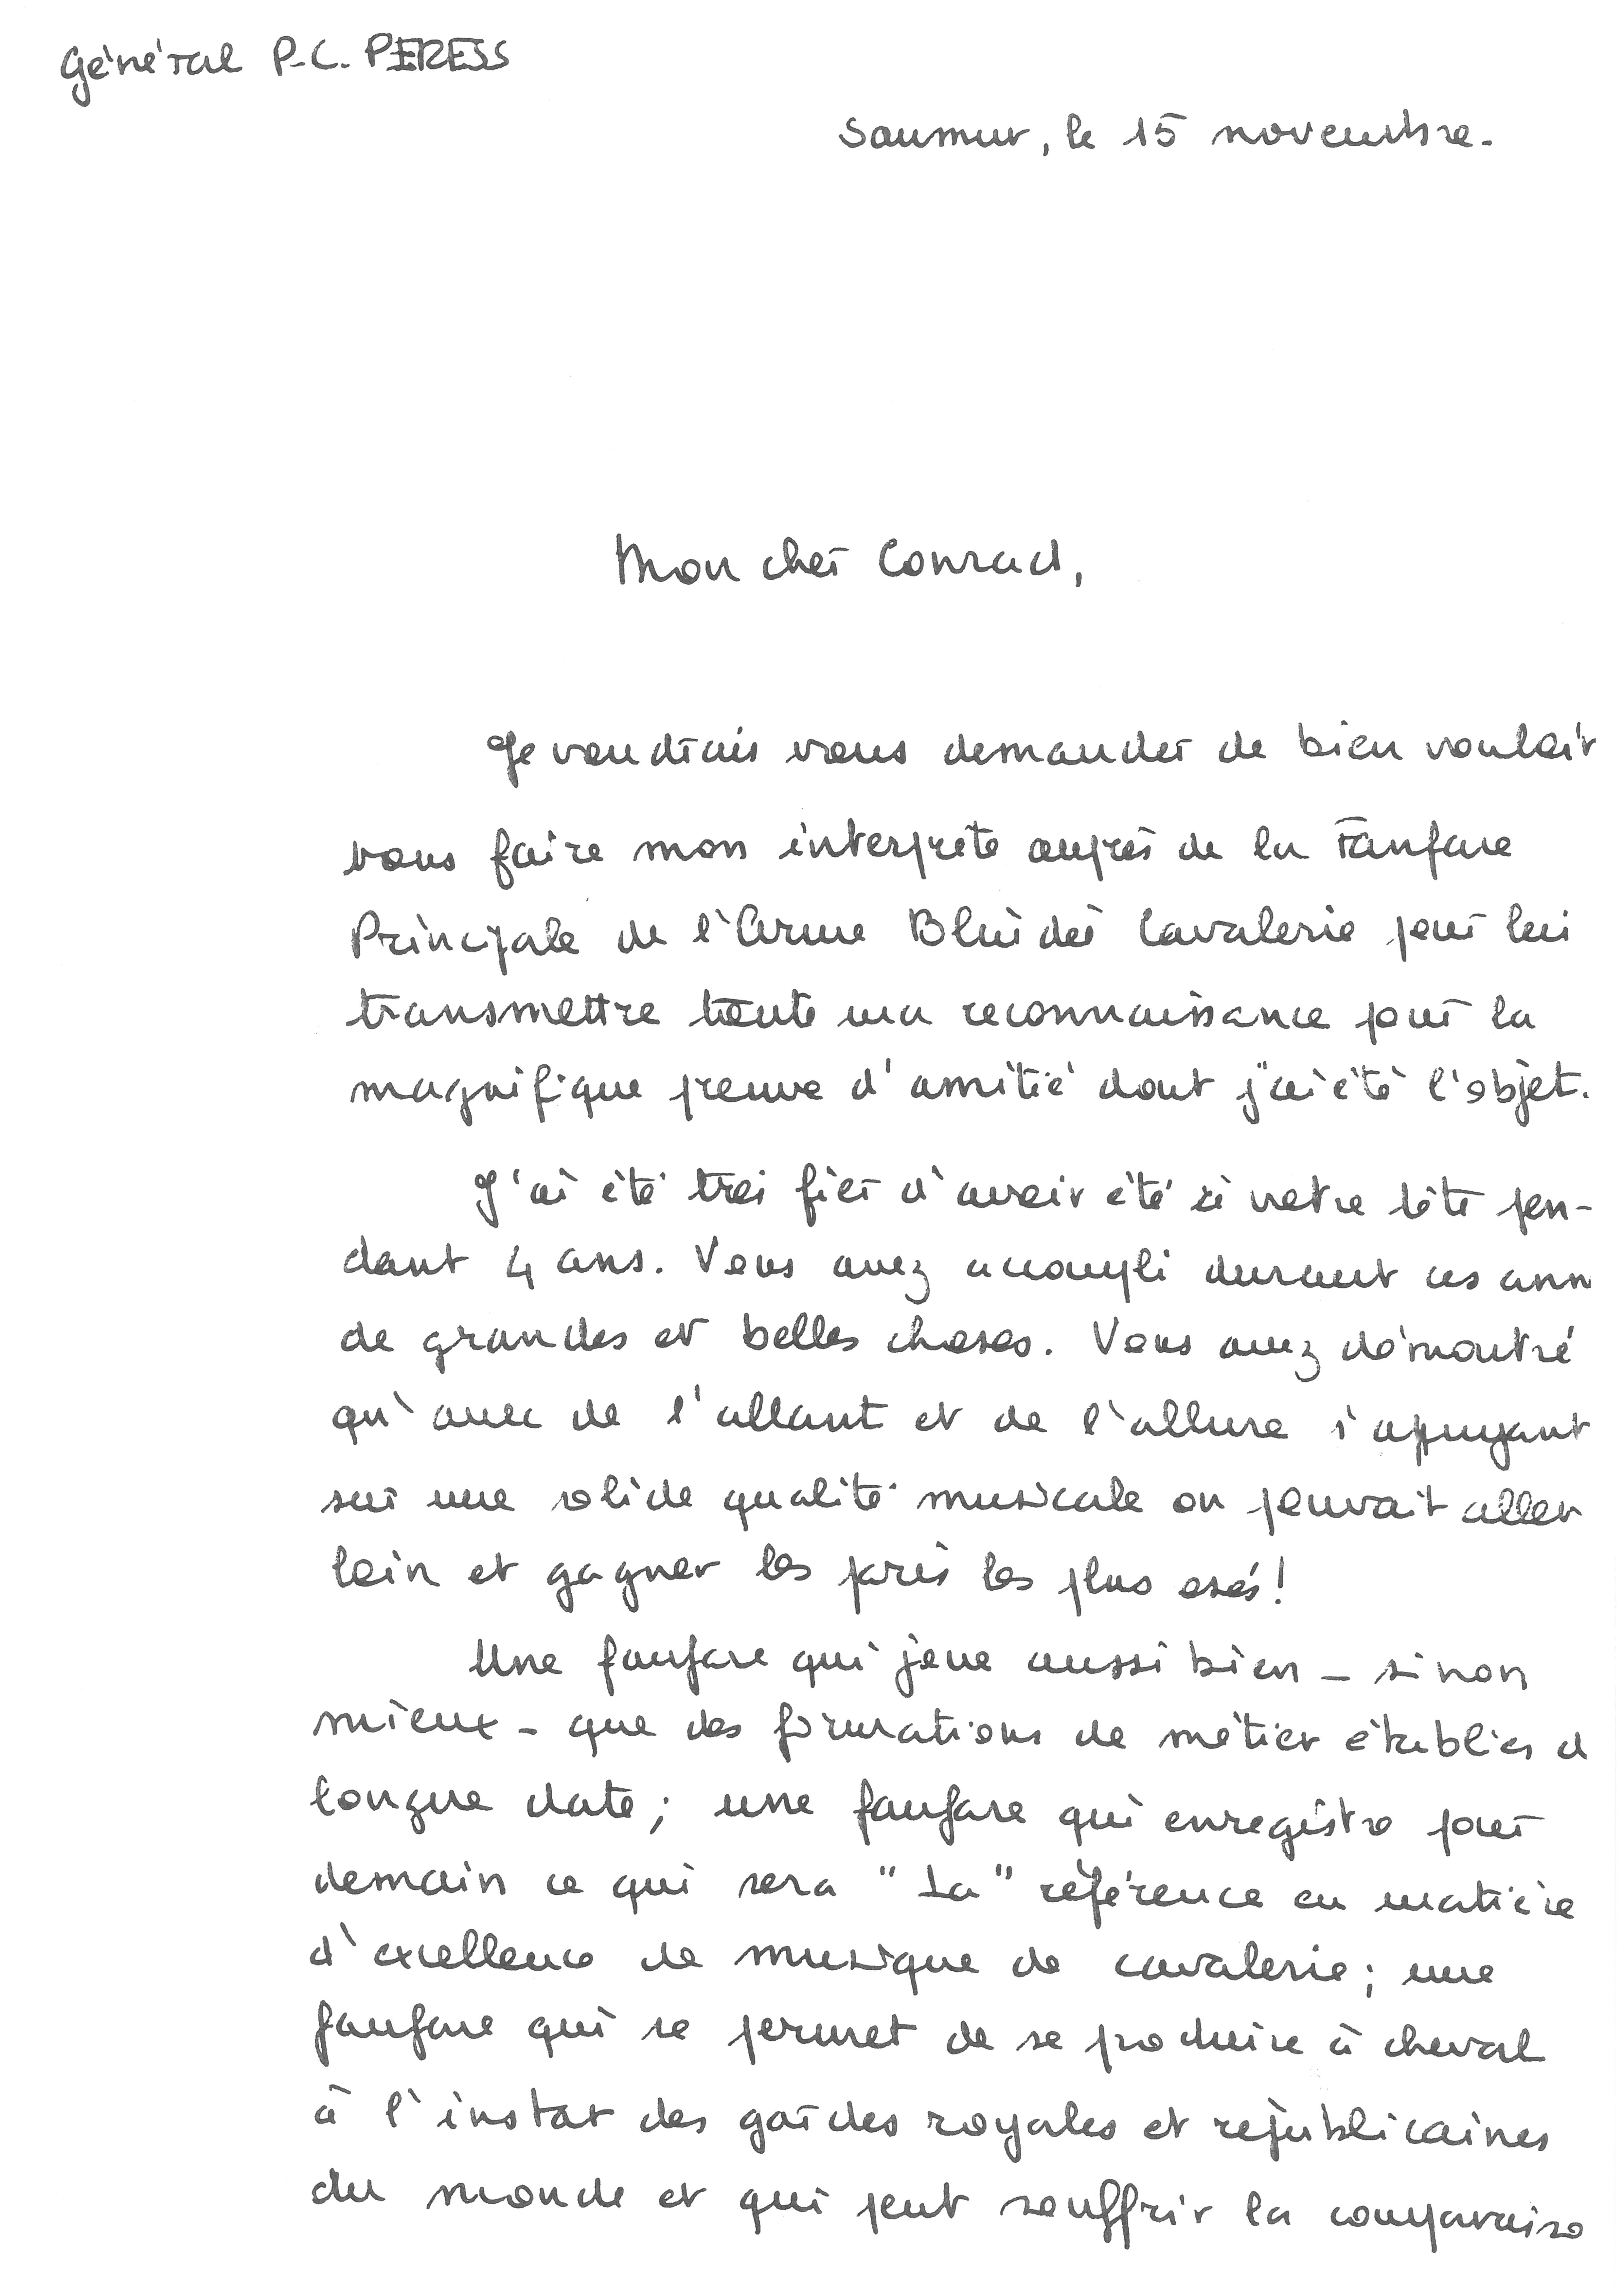 Général P.C. PERESS
Saumur, le 15 novembre.
Mon cher Conrad,
Je voudrais vous demander de bien vouloir
vous faire mon interprète auprès de la Fanfare
Principale de l'Arme Blindée Cavalerie pour lui
transmettre toute ma reconnaissance pour la
magnifique preuve d'amitié dont j'ai été l'objet.
J'ai été très fier d'avoir été à votre tête pen-
dant 4 ans. Vous avez accompli durant ces ann
de grandes et belles choses. Vous avez démontré
qu'avec de l'allant et de l'allure s'appuyant
sur une solide qualité musicale on pouvait aller
loin et gagner les paris les plus osés!
Une fanfare qui joue aussi bien - sinon
mieux - que des formations de métier établies d
longue date; une fanfare qui enregistre pour
demain ce qui sera "La" référence en matière
d'excellence de musique de cavalerie; une
fanfare qui se permet de se produire à cheval
à l'instar des gardes royales et républicaines
du monde et qui peut souffrir la comparaiso